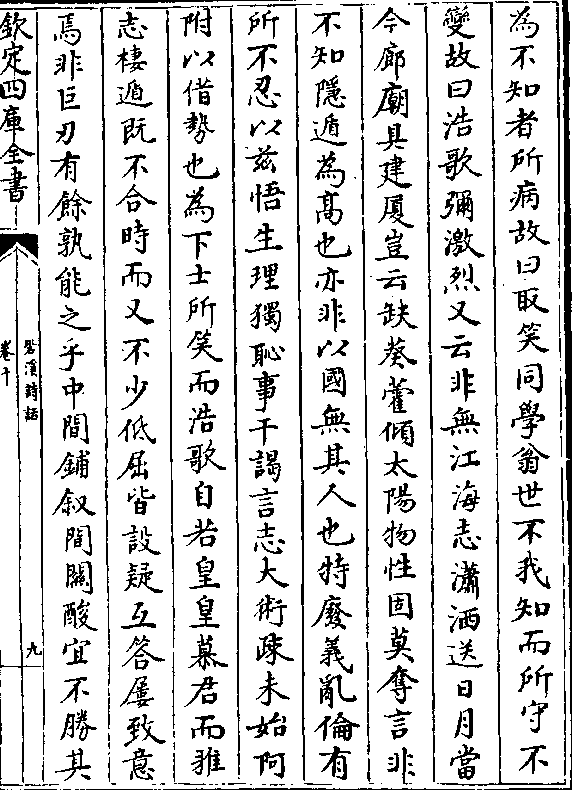 為不知者所病故曰取笑同學翁世不我知而所守不
變故曰浩歌彌激烈又云非無江海志瀟洒送日月當
今廊廟具建厦豈云缺葵藿傾太陽物性固莫奪言非
不知隱遁為髙也亦非以國無其人也特廢義亂倫有
所不忍以兹悟生理獨恥事干謁言志大術疎未始阿
附以借勢也為下士所笑而浩歌自若皇皇慕君而雅
志棲遁既不合時而又不少低屈皆設疑互答屢致意
焉非巨刃有餘孰能之乎中間鋪叙間關酸宜不勝其
欽定四庫全書
卷十
䂬溪詩話
九